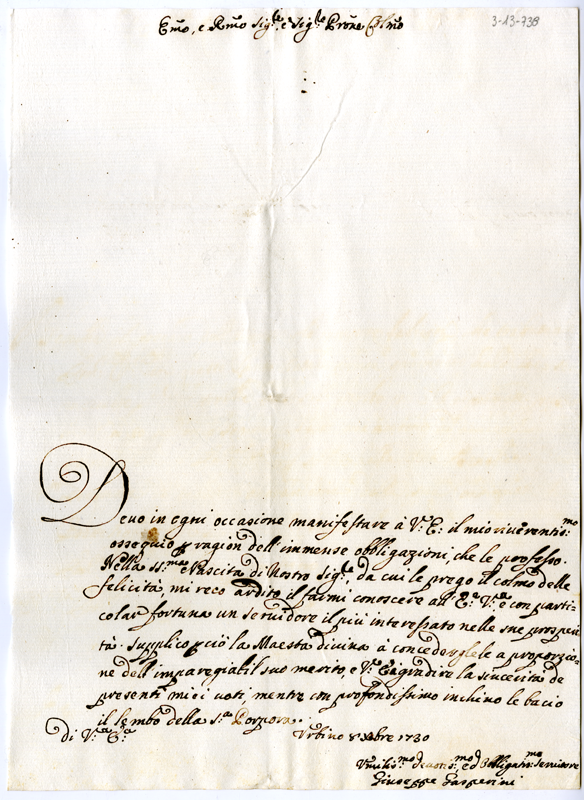 3-13-738
Emo, e Rmo Sigre, e Sigre Prone Colmo
Devo in ogni occasione manifestare à V: E: il mio riverentis:mo
ossequio p ragion dell'immense obbligazioni, che le professo.
Nella SS:ma Nascita di Nostro Sigre, da cui le prego il colmo delle
felicità, mi reco ardito il farmi conoscere all'E: V:a e con parti
colar fortuna un servidore il più interessato nelle sue prosperi
tà. Supplico pciò la Maestà divina à concedergliele a proporzio
ne dell'impareggiabil suo merito, e V: E: à gradire la sincerità de
presenti miei voti, mentre con profondissimo inchino le bacio
il lembo della S:a Porpora.
Di V:a E:a Urbino 8 Xbre 1730
Umilis:mo devotis:mo ed Obligatis:mo Servitore
Giuseppe Gasperini